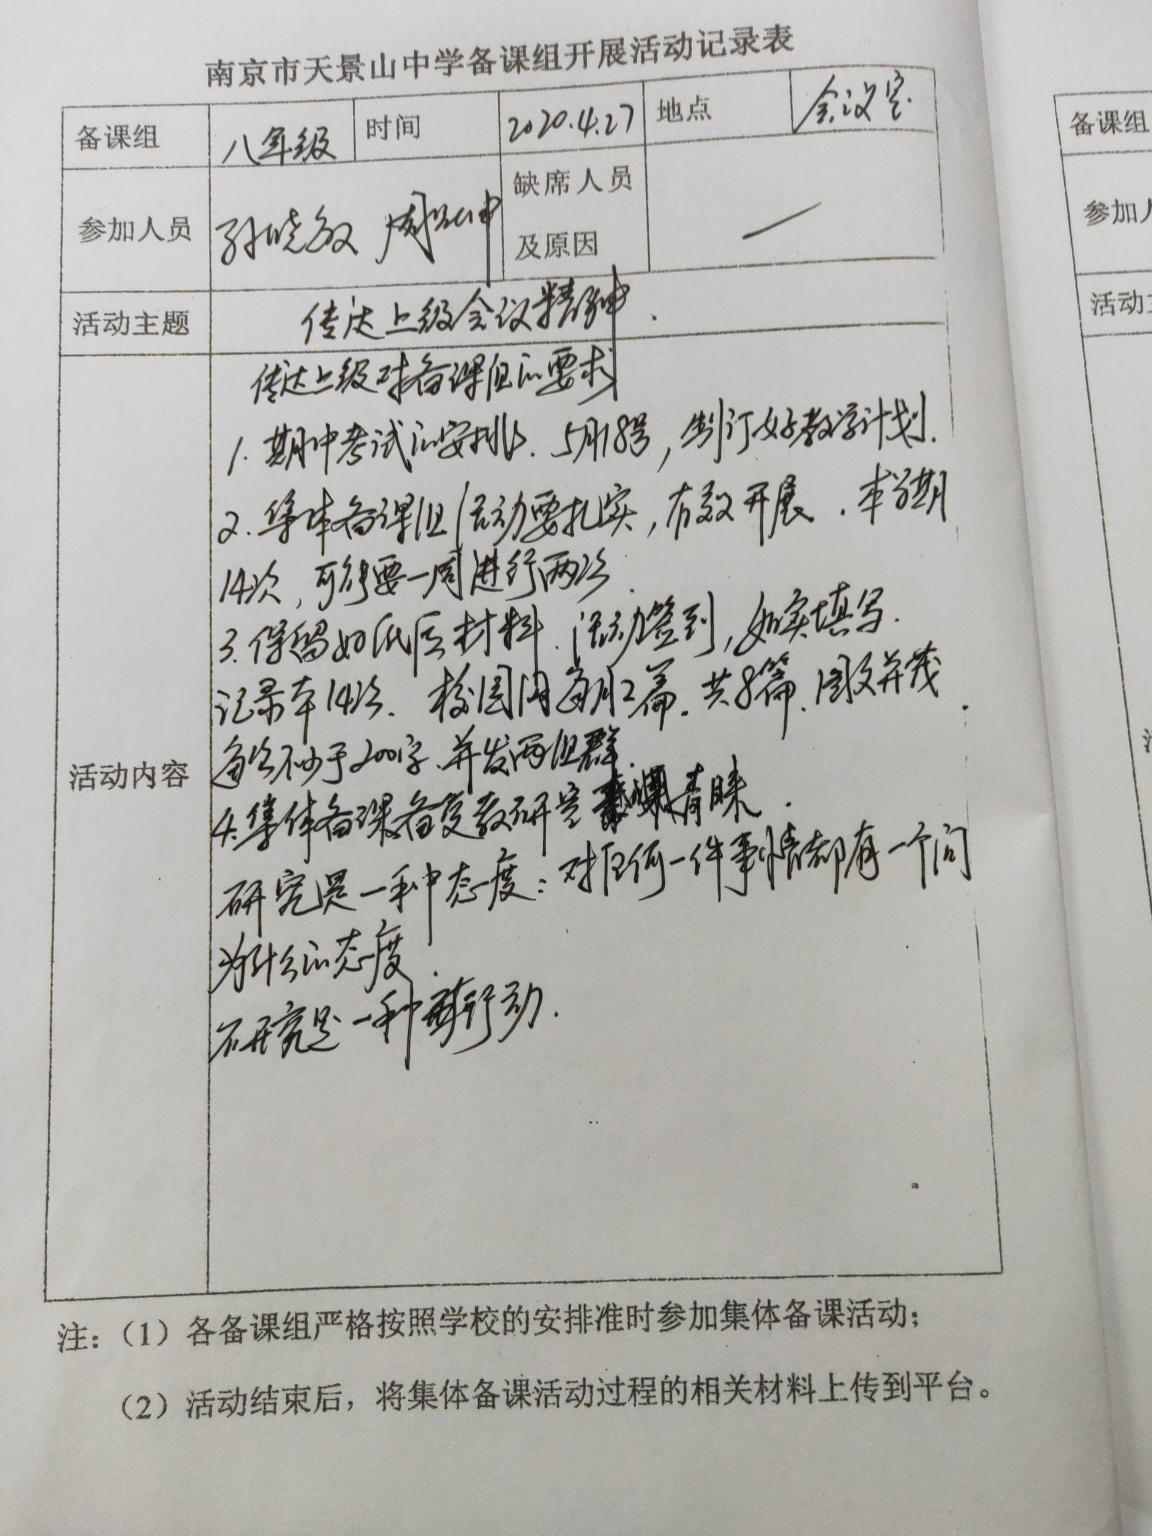 南京市天景山中学备课组开展活动记录表
备课组 八年级 时间 2020.4.27 地点 会议室
参加人员 孙晓敏 周 缺席人员及原因 —
活动主题 传达上级会议精神.
活动内容
传达上级对备课组的要求
1. 期中考试的安排. 5月18号, 制订好教学计划.
2. 集体备课组活动要扎实, 有效开展. 本学期
14次, 可能要一周进行两次.
3. 保留好纸质材料. 活动签到, 如实填写.
记录本14次. 校园网每月2篇. 共8篇. 图文并茂.
每次不少于200字. 并发两组群.
4. 集体备课备受教研室青睐.
研究是一种态度: 对任何一件事情都有一个问
为什么的态度.
研究是一种行动.
注:（1）各备课组严格按照学校的安排准时参加集体备课活动;
（2）活动结束后，将集体备课活动过程的相关材料上传到平台。
备课组
参加人
活动主